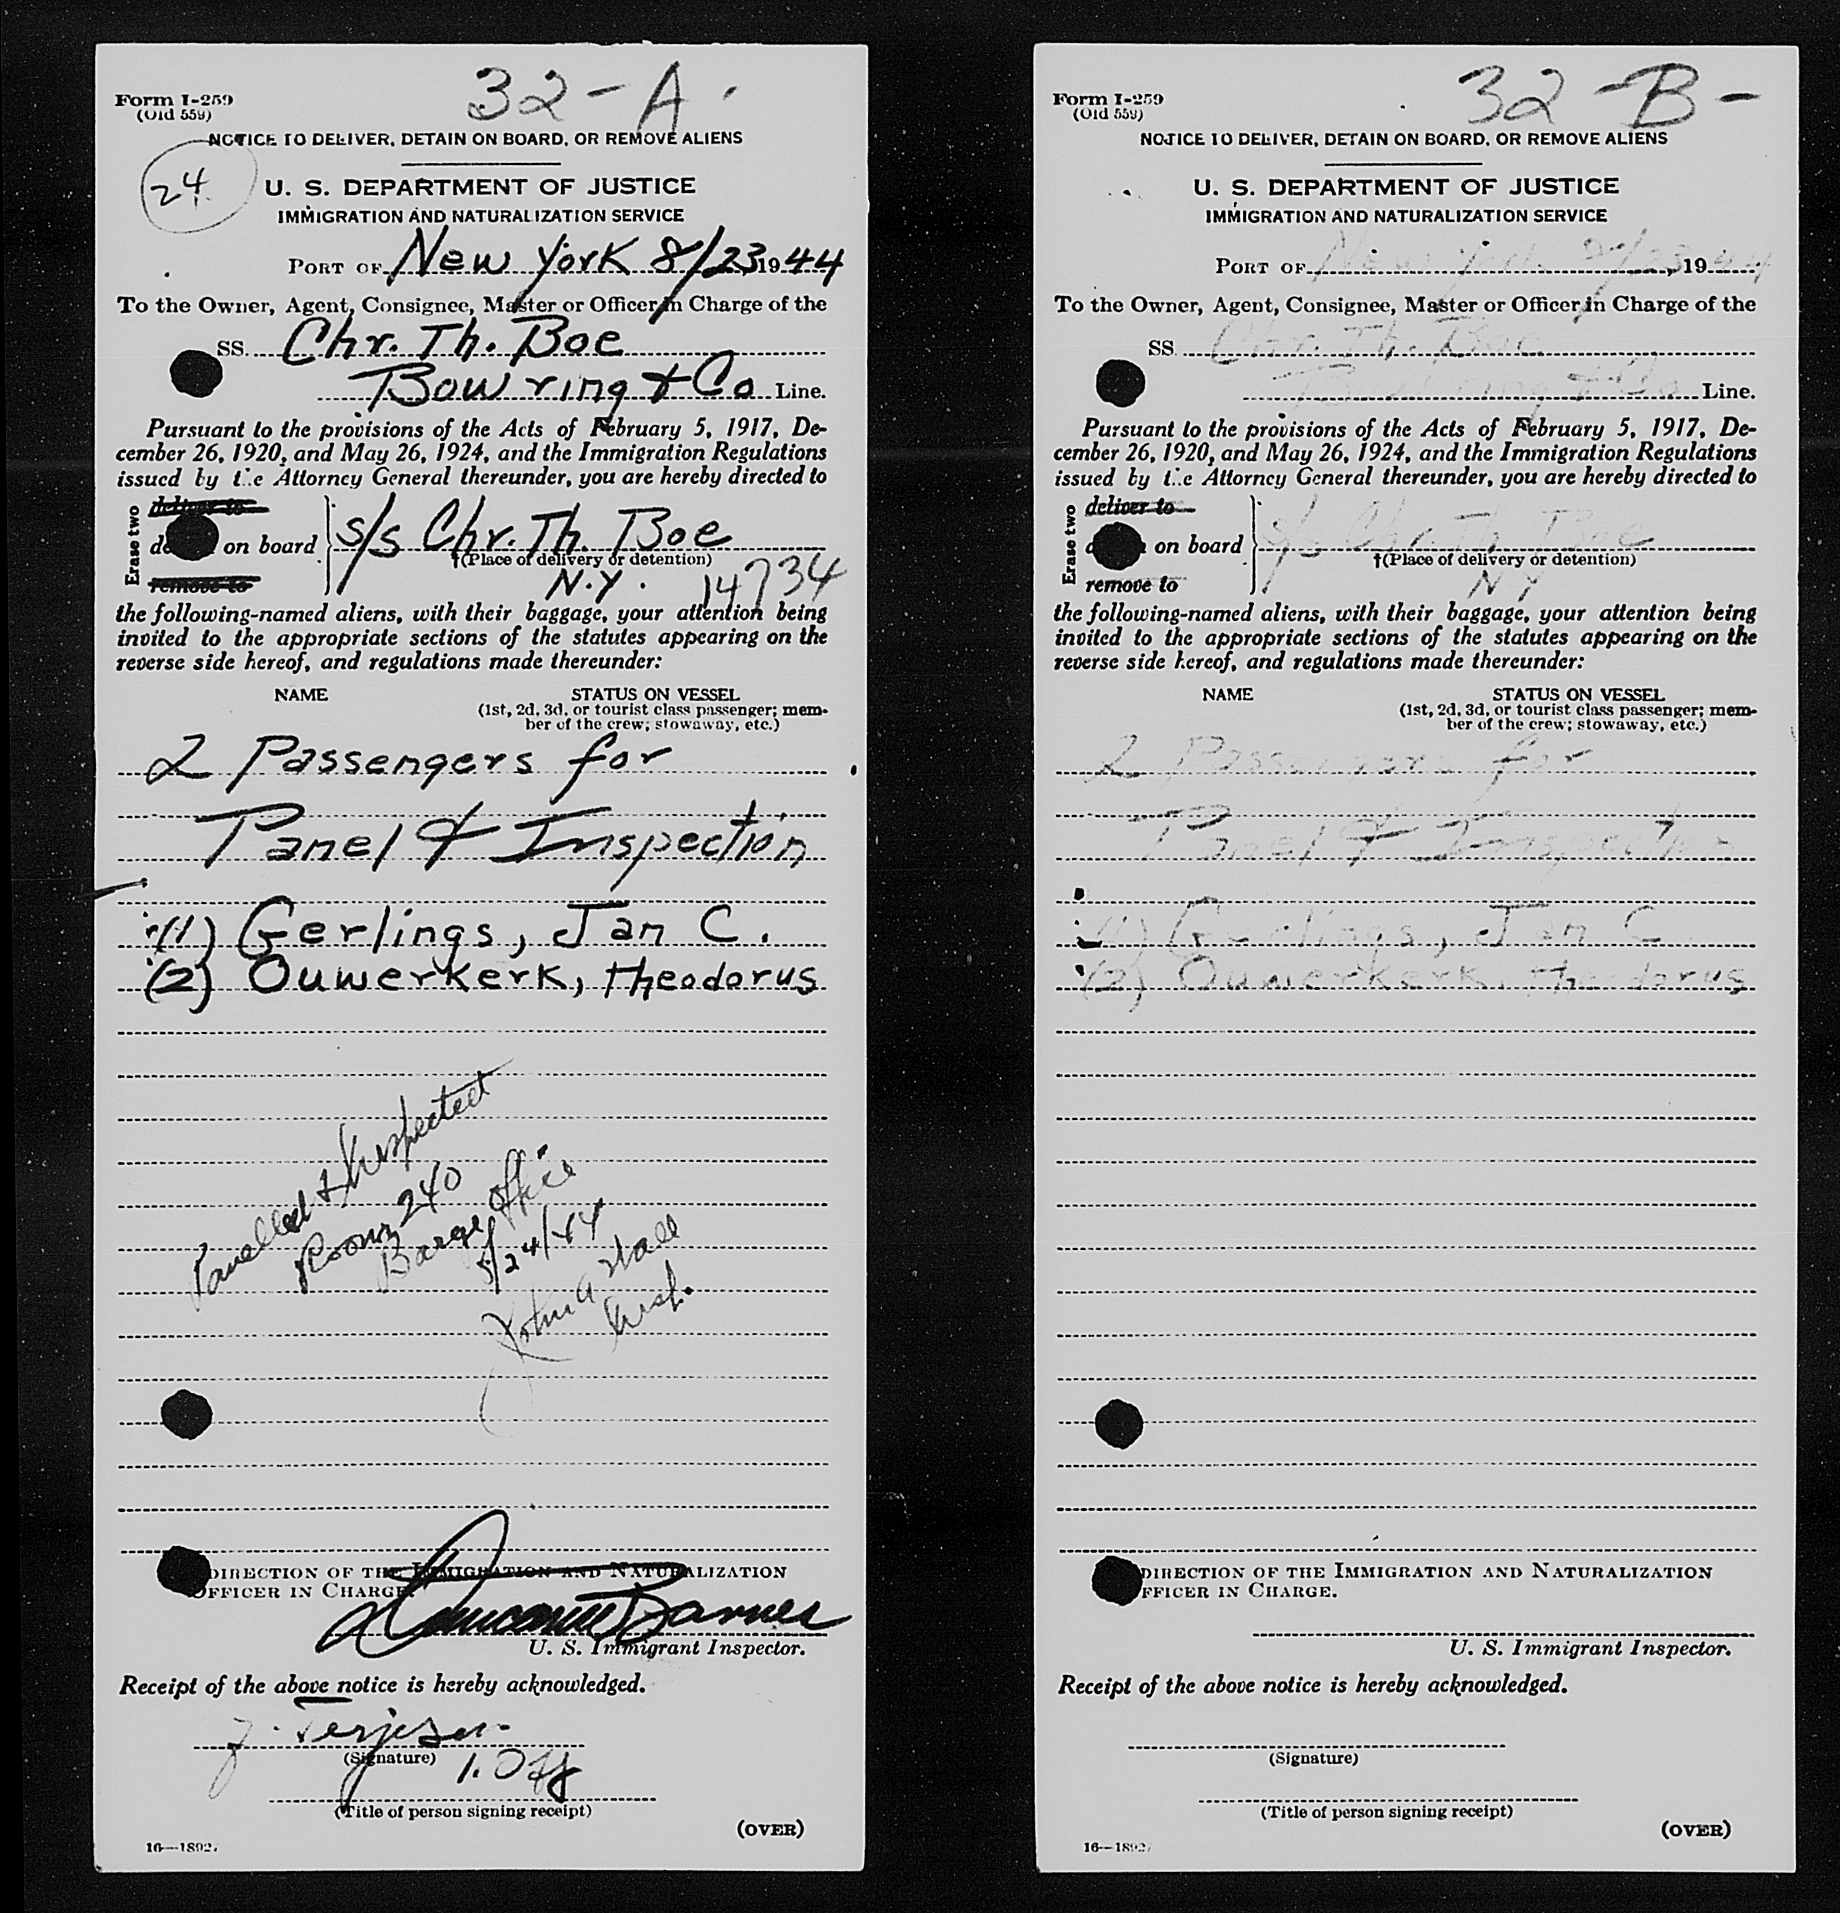 32-A
Form I-259
(Old 559)
NOTICE TO DELIVER, DETAIN ON BOARD, OR REMOVE ALIENS
24
U. S. DEPARTMENT OF JUSTICE
IMMIGRATION AND NATURALIZATION SERVICE
PORT OF New York 8/23 1944
To the Owner, Agent, Consignee, Master or Officer in Charge of the
SS. Chr. Th. Boe
Bowring & Co Line.
Pursuant to the provisions of the Acts of February 5, 1917, De-
cember 26, 1920, and May 26, 1924, and the Immigration Regulations
issued by the Attorney General thereunder, you are hereby directed to
Erase two
deliver to
on board s/s Chr. Th. Boe
†(Place of delivery or detention)
remove to
N.Y. 14734
the following-named aliens, with their baggage, your attention being
invited to the appropriate sections of the statutes appearing on the
reverse side hereof, and regulations made thereunder:
NAME STATUS ON VESSEL
(1st, 2d, 3d, or tourist class passenger; mem-
ber of the crew; stowaway, etc.)
2 Passengers for
Panel & Inspection
(1) Gerlings, Jan C.
(2) Ouwerkerk, Theodorus
Panelled & Inspected
Room 240
Barge Office
8/24/44
John A Wall
Insp.
DIRECTION OF THE IMMIGRATION AND NATURALIZATION
OFFICER IN CHARGE.
Barnes
U. S. Immigrant Inspector.
Receipt of the above notice is hereby acknowledged.
J. Terjesen
(Signature)
1. Off
(Title of person signing receipt)
(OVER)
16—1892
32-B-
Form I-259
(Old 559)
NOTICE TO DELIVER, DETAIN ON BOARD, OR REMOVE ALIENS
U. S. DEPARTMENT OF JUSTICE
IMMIGRATION AND NATURALIZATION SERVICE
PORT OF New York 8/23, 1944
To the Owner, Agent, Consignee, Master or Officer in Charge of the
SS. Chr. Th. Boe
Bowring & Co Line.
Pursuant to the provisions of the Acts of February 5, 1917, De-
cember 26, 1920, and May 26, 1924, and the Immigration Regulations
issued by the Attorney General thereunder, you are hereby directed to
Erase two
deliver to
on board s/s Chr. Th. Boe
†(Place of delivery or detention)
remove to
N Y
the following-named aliens, with their baggage, your attention being
invited to the appropriate sections of the statutes appearing on the
reverse side hereof, and regulations made thereunder:
NAME STATUS ON VESSEL
(1st, 2d, 3d, or tourist class passenger; mem-
ber of the crew; stowaway, etc.)
2 Passengers for
Panel & Inspection
(1) Gerlings, Jan C
(2) Ouwerkerk, Theodorus
DIRECTION OF THE IMMIGRATION AND NATURALIZATION
OFFICER IN CHARGE.
U. S. Immigrant Inspector.
Receipt of the above notice is hereby acknowledged.
(Signature)
(Title of person signing receipt)
(OVER)
16—1892